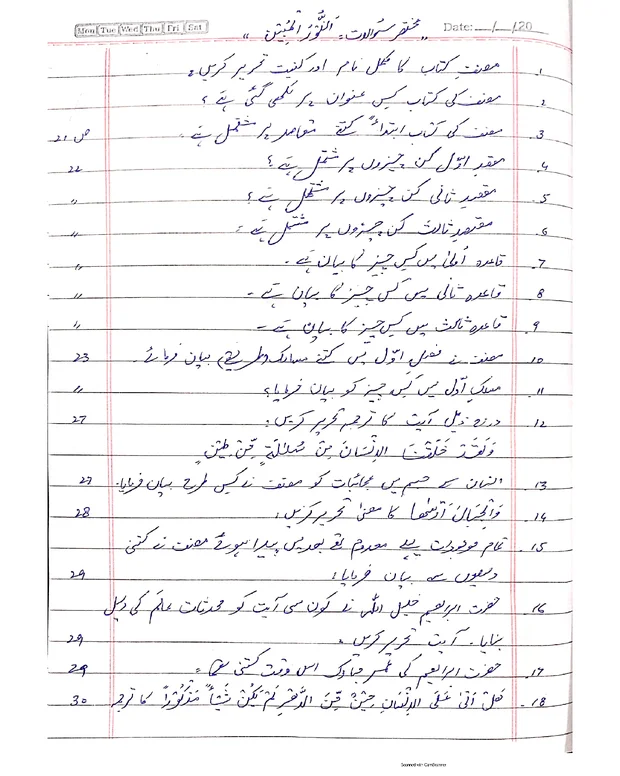 Mon Tue Wed Thu Fri Sat
Date: __/__/20
"مختصر سوالات: اَلنُّورُ الْمُبِیْن"
1. مصنفِ کتاب کا مکمل نام اور کنیت تحریر کریں۔
2. مصنف کی کتاب کس عنوان پر لکھی گئی ہے؟
3. مصنف کی کتاب ابتداءً کتنے مقاصد پر مشتمل ہے۔ ص 21
4. مقصد اوّل کن چیزوں پر مشتمل ہے؟ 22
5. مقصدِ ثانی کن چیزوں پر مشتمل ہے؟ "
6. مقصدِ ثالث کن چیزوں پر مشتمل ہے؟ "
7. قاعدہ اُولیٰ میں کس چیز کا بیان ہے۔ "
8. قاعدہ ثانی میں کس چیز کا بیان ہے۔ "
9. قاعدہ ثالث میں کس چیز کا بیان ہے۔ "
10. مصنف نے فصل اوّل میں کتنے مسالک (طریقے) بیان فرمائے۔ 23
11. مسلکِ اَوّل میں کس چیز کو بیان فرمایا؟ "
12. درج ذیل آیت کا ترجمہ تحریر کریں: 27
وَلَقَدْ خَلَقْنَا الْاِنْسَانَ مِنْ سُلٰلَةٍ مِّنْ طِیْنٍ
13. انسان کے جسم میں عجائبات کو مصنف نے کس طرح بیان فرمایا۔ 27
14. وَالْجِبَالَ اَرْسٰهَا کا معنیٰ تحریر کریں: 28
15. تمام موجودات پہلے معدوم تھے بعد میں پیدا ہوئے مصنف نے کتنی
سے بیان فرمایا: 29
16. حضرت ابراہیم خلیل اللہ نے کون سی آیت کو عالَم کی دلیل
بنایا۔ آیت تحریر کریں۔ 29
17. حضرت ابراہیم کی عمر مبارک اس وقت کتنی تھی۔ 29
18. هَلْ اَتٰى عَلَى الْاِنْسَانِ حِیْنٌ مِّنَ الدَّهْرِ لَمْ یَكُنْ شَیْأً مَّذْكُوْرًا کا ترجمہ 30
Scanned with CamScanner